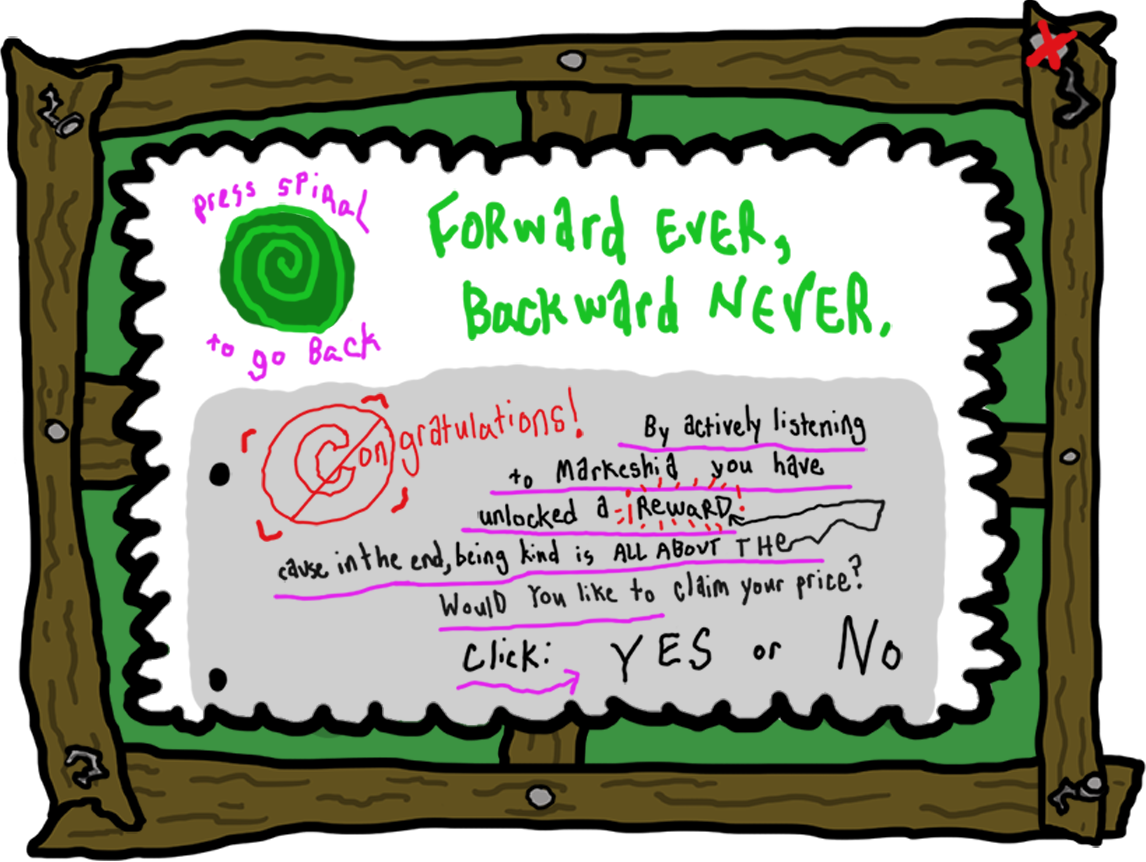 press spiral
to go Back
Forward Ever,
Backward Never.
Congratulations!
By actively listening
to Markeshia you have
unlocked a Reward
cause in the end, being kind is ALL ABOUT THE
Would You like to claim your price?
Click: YES or No